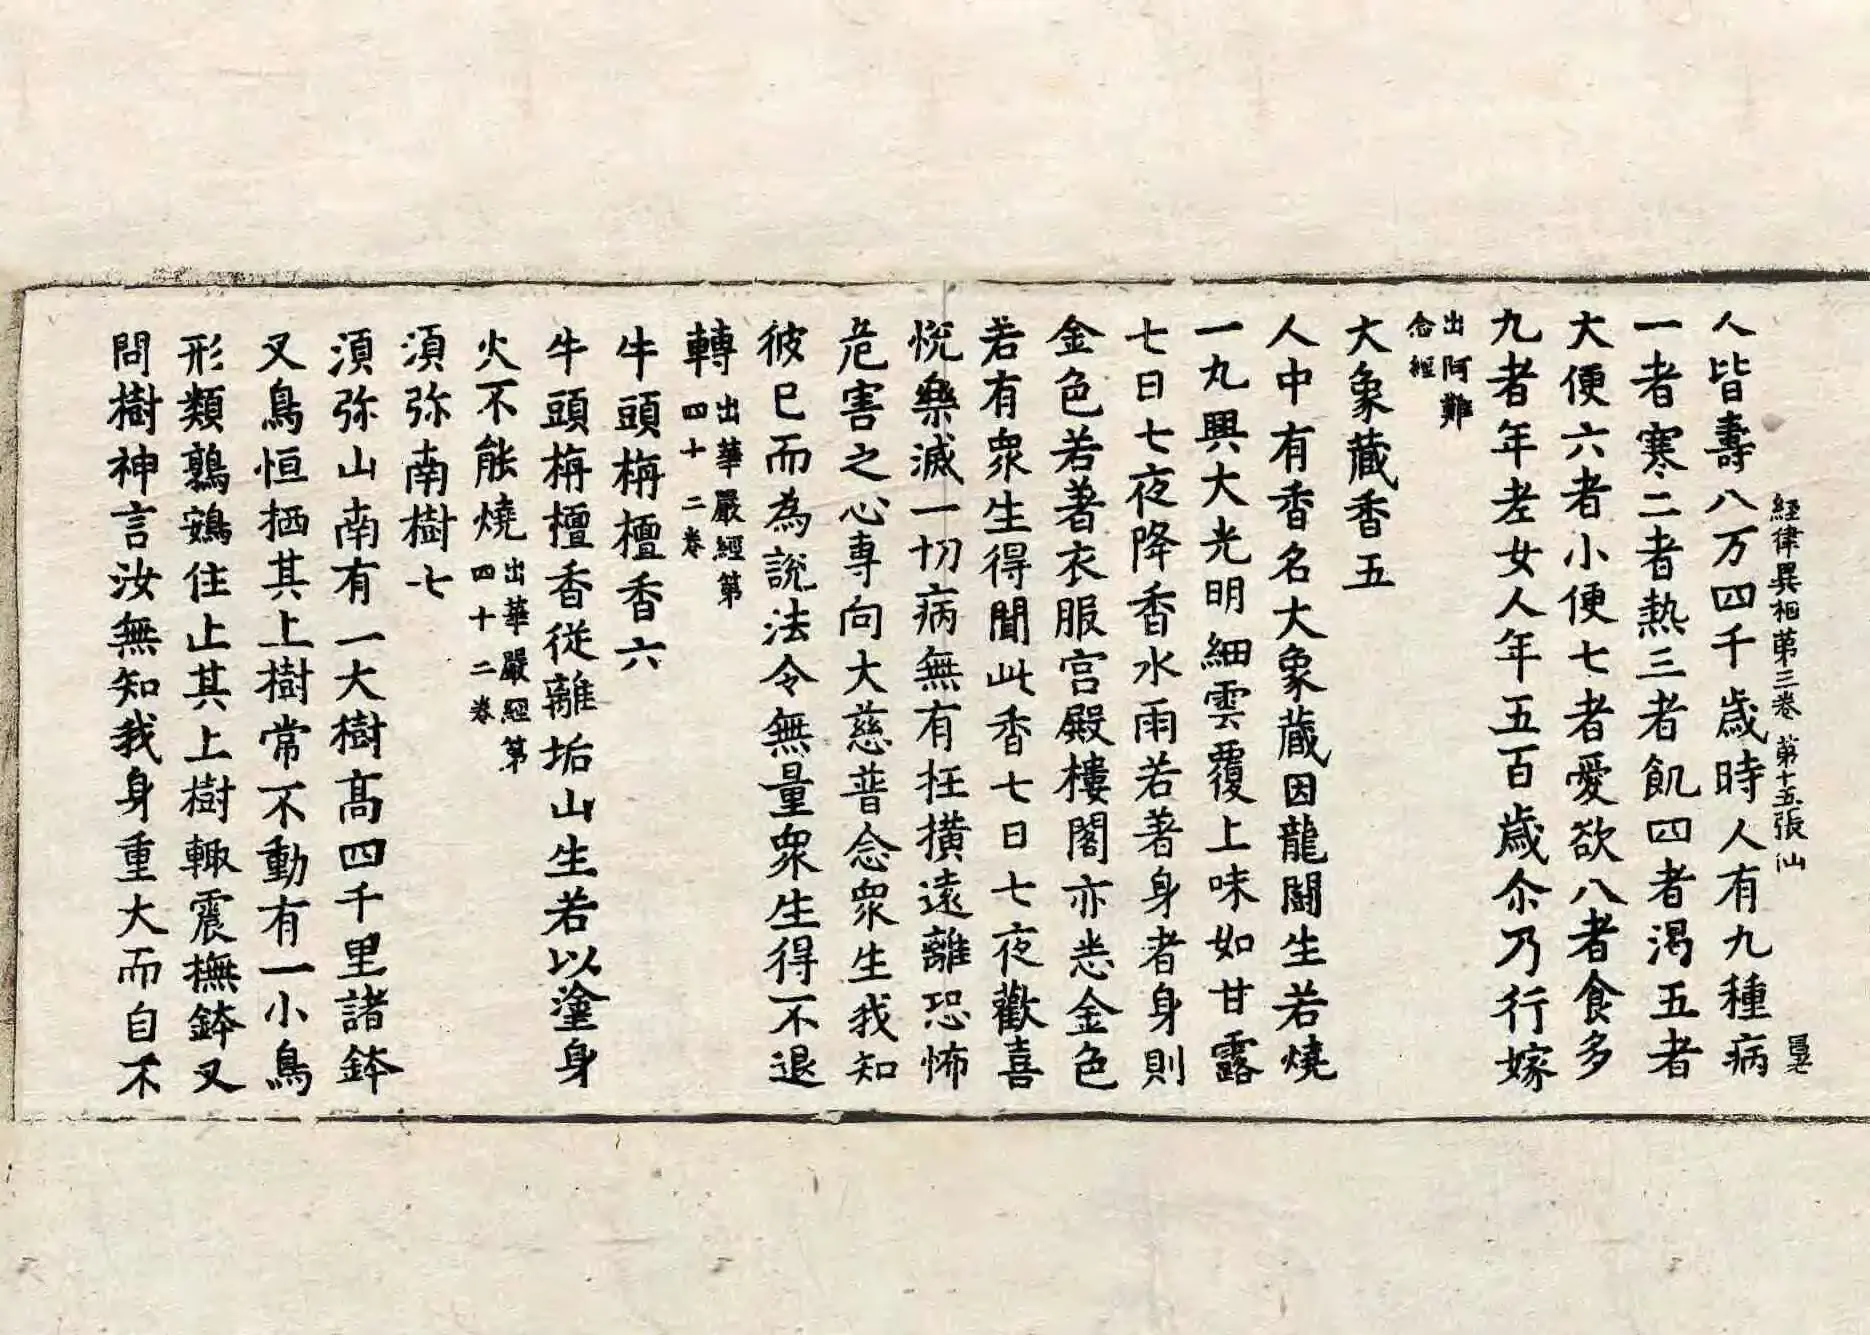 経律異相第三卷 第十五張 仙
人皆壽八万四千歳時人有九種病
一者寒二者熱三者飢四者渴五者
大便六者小便七者愛欲八者食多
九者年老女人年五百歳尒乃行嫁
出阿難
念經
大象藏香五
人中有香名大象藏因龍闘生若燒
一丸興大光明細雲覆上味如甘露
七日七夜降香水雨若著身者身則
金色若著衣服宫殿樓閣亦悉金色
若有衆生得聞此香七日七夜歡喜
悦樂滅一切病無有枉橫遠離恐怖
危害之心専向大慈普念衆生我知
彼已而為説法令無量衆生得不退
轉出華嚴經第
四十二卷
牛頭栴檀香六
牛頭栴檀香従離垢山生若以塗身
火不能燒出華嚴經第
四十二卷
湏弥南樹七
湏弥山南有一大樹髙四千里諸鉢
叉鳥恒栖其上樹常不動有一小鳥
形類鶉鴳住止其上樹輙震橅鉢叉
問樹神言汝無知我身重大而自不